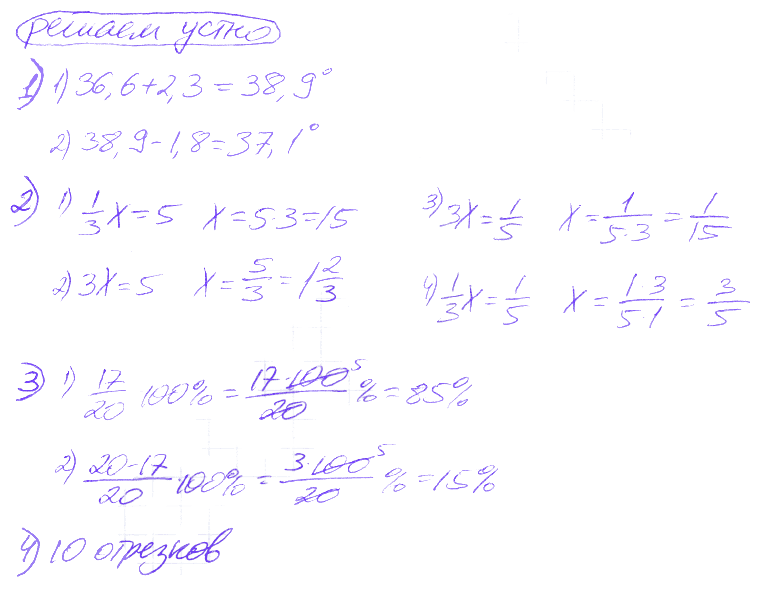 решаем устно
1) 1) 36,6+2,3=38,9°
2) 38,9-1,8=37,1°
2) 1) 1/3 x=5 x=5·3=15
2) 3x=5 x=5/3=1 2/3
3) 3x=1/5 x=1/(5·3)=1/15
4) 1/3 x=1/5 x=(1·3)/(5·1)=3/5
3) 1) 17/20 100%=(17·100⁵)/20 %=85%
2) (20-17)/20·100%=(3·100⁵)/20 %=15%
4) 10 отрезков